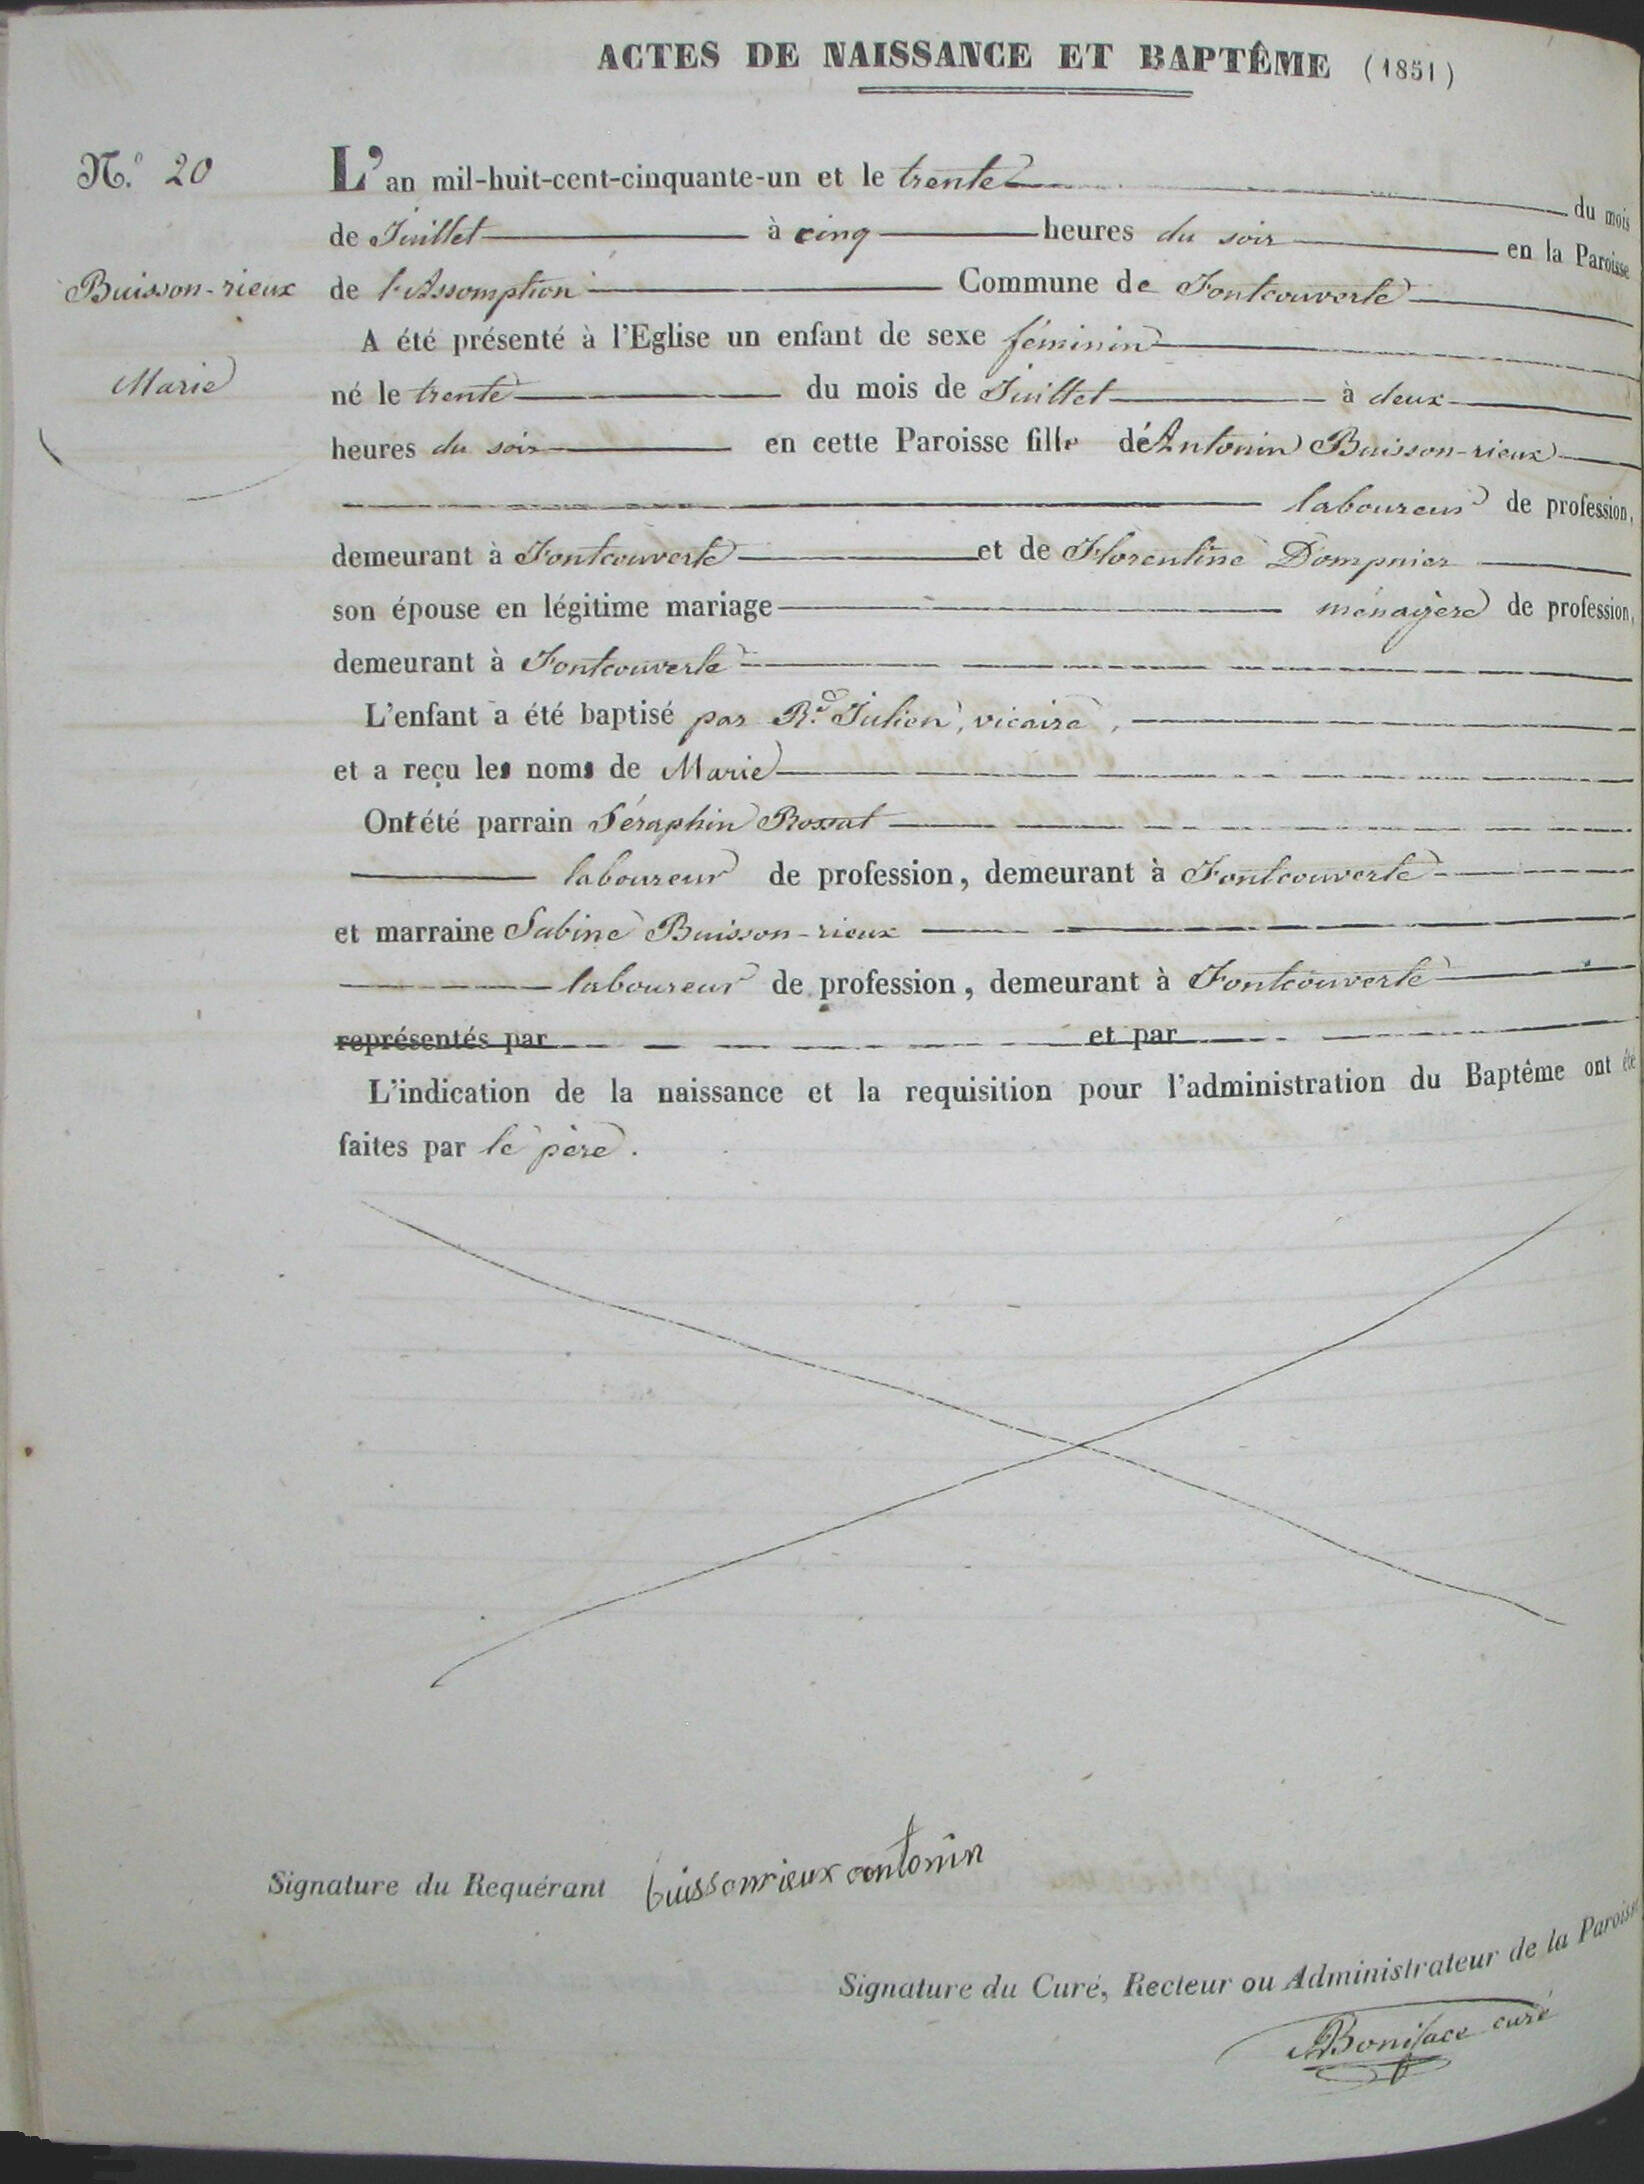 ACTES DE NAISSANCE ET BAPTÊME (1851)
N.º 20
Buisson-rieux
Marie
L'an mil-huit-cent-cinquante-un et le trente du mois
de Juillet à cinq heures du soir en la Paroisse
de l'Assomption Commune de Fontcouverte
A été présenté à l'Eglise un enfant de sexe féminin
né le trente du mois de Juillet à deux
heures du soir en cette Paroisse fille d'Antonin Buisson-rieux
laboureur de profession,
demeurant à Fontcouverte et de Florentine Dompnier
son épouse en légitime mariage ménagère de profession,
demeurant à Fontcouverte
L'enfant a été baptisé par R.d Julien, vicaire,
et a reçu les noms de Marie
Ont été parrain Séraphin Rossat
laboureur de profession, demeurant à Fontcouverte
et marraine Sabine Buisson-rieux
laboureur de profession, demeurant à Fontcouverte
représentés par et par
L'indication de la naissance et la requisition pour l'administration du Baptême ont été
faites par le père.
Signature du Requérant buissonrieux antonin
Signature du Curé, Recteur ou Administrateur de la Paroisse
Boniface curé